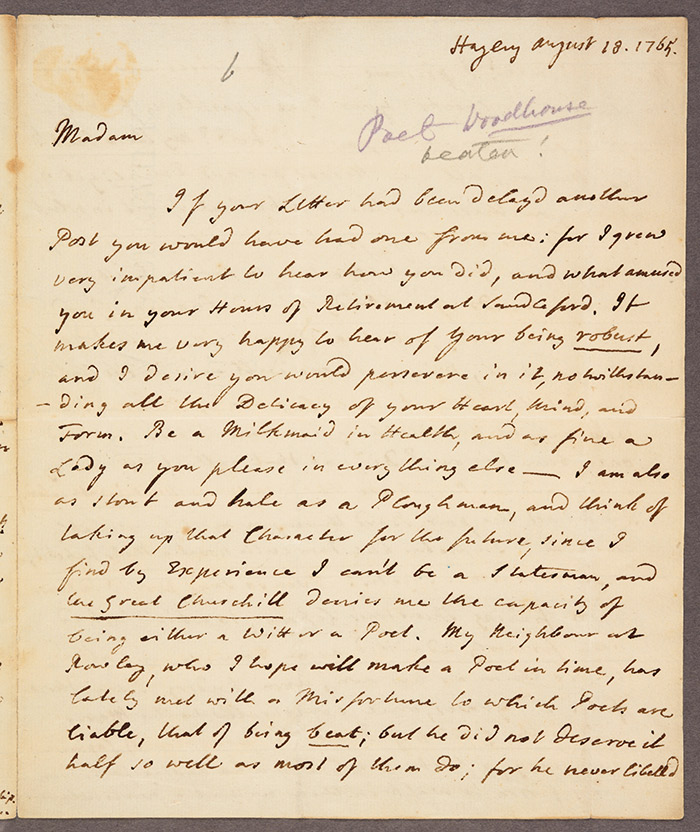 Hagley August 18. 1765.
6
Poet Woodhouse
beaten!
Madam
If your Letter had been delayd another
Post you would have had one from me; for I grew
very impatient to hear how you did, and what amused
you in your Hours of Retirement at Sandleford. It
makes me very happy to hear of your being robust,
and I desire you would persevere in it, notwithstan-
-ding all the Delicacy of your Heart, Mind, and
Form. Be a Milkmaid in Health, and as fine a
Lady as you please in everything else — I am also
as stout and hale as a Ploughman, and think of
taking up that Character for the future, since I
find by Experience I can't be a Statesman, and
the Great Churchill denies me the capacity of
being either a Witt or a Poet. My Neighbour at
Rowley, who I hope will make a Poet in time, has
lately met with a Misfortune to which Poets are
liable, that of being beat; but he did not deserve it
half so well as most of them do; for he never libelled